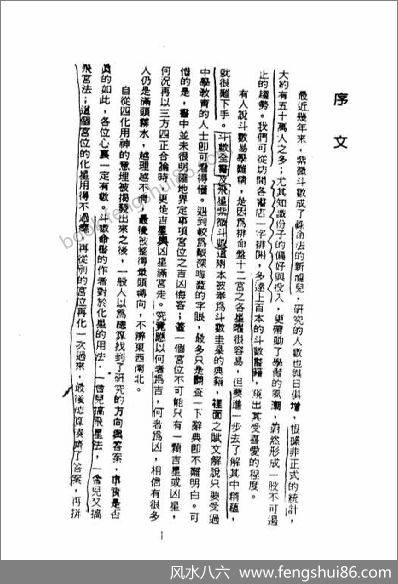 序文
最近幾年來，紫微斗數成了祿命法的新寵兒，研究的人數也與日俱增，根據非正式的統計，
大約有五十萬人之多；尤其知識份子的偏好與投入，更帶動了學習的風潮，蔚然形成一股不可遏
止的趨勢。我們可從坊間各書店一字排開，多達上百本的斗數書籍，現出其受喜愛的程度。
有人說斗數易學難精，是因為排命盤十二宮之各星曜很容易，但要進一步去了解其中精蘊，
就很難下手。斗數全書及飛星紫微斗數這兩本被舉爲斗數圭臬的典籍，裡面之賦文解說只要受過
中學教育的人士卽可看得懂。遇到較爲艱深晦澀的字眼，最多只是翻查一下辭典卽不難明白。可
惜的是，書中並未很明確地界定事項宮位之吉凶悔咎；蓋一個宮位不可能只有一顆吉星或凶星，
何況再以三方四正合論時，更是吉星與凶星滿宮走。究竟應以何者爲吉，何者爲凶，相信有很多
人仍是滿頭霧水，越理越不淸，最後被整得暈頭轉向，不辨東西南北。
自從四化用神的意理被揭發出來之後，一般人以爲總算找到了研究的方向與答案，事實是否
眞的如此，各位心裏一定有數。斗數命書的作者對於化星的用法，一會兒搞飛星法，一會兒又搞
飛宮法；這個宮位的化星用得不過癮，再從別的宮位再化一次過來，最後總算湊齊了答案，再拼
1
风水八六
www.fengshui86.com